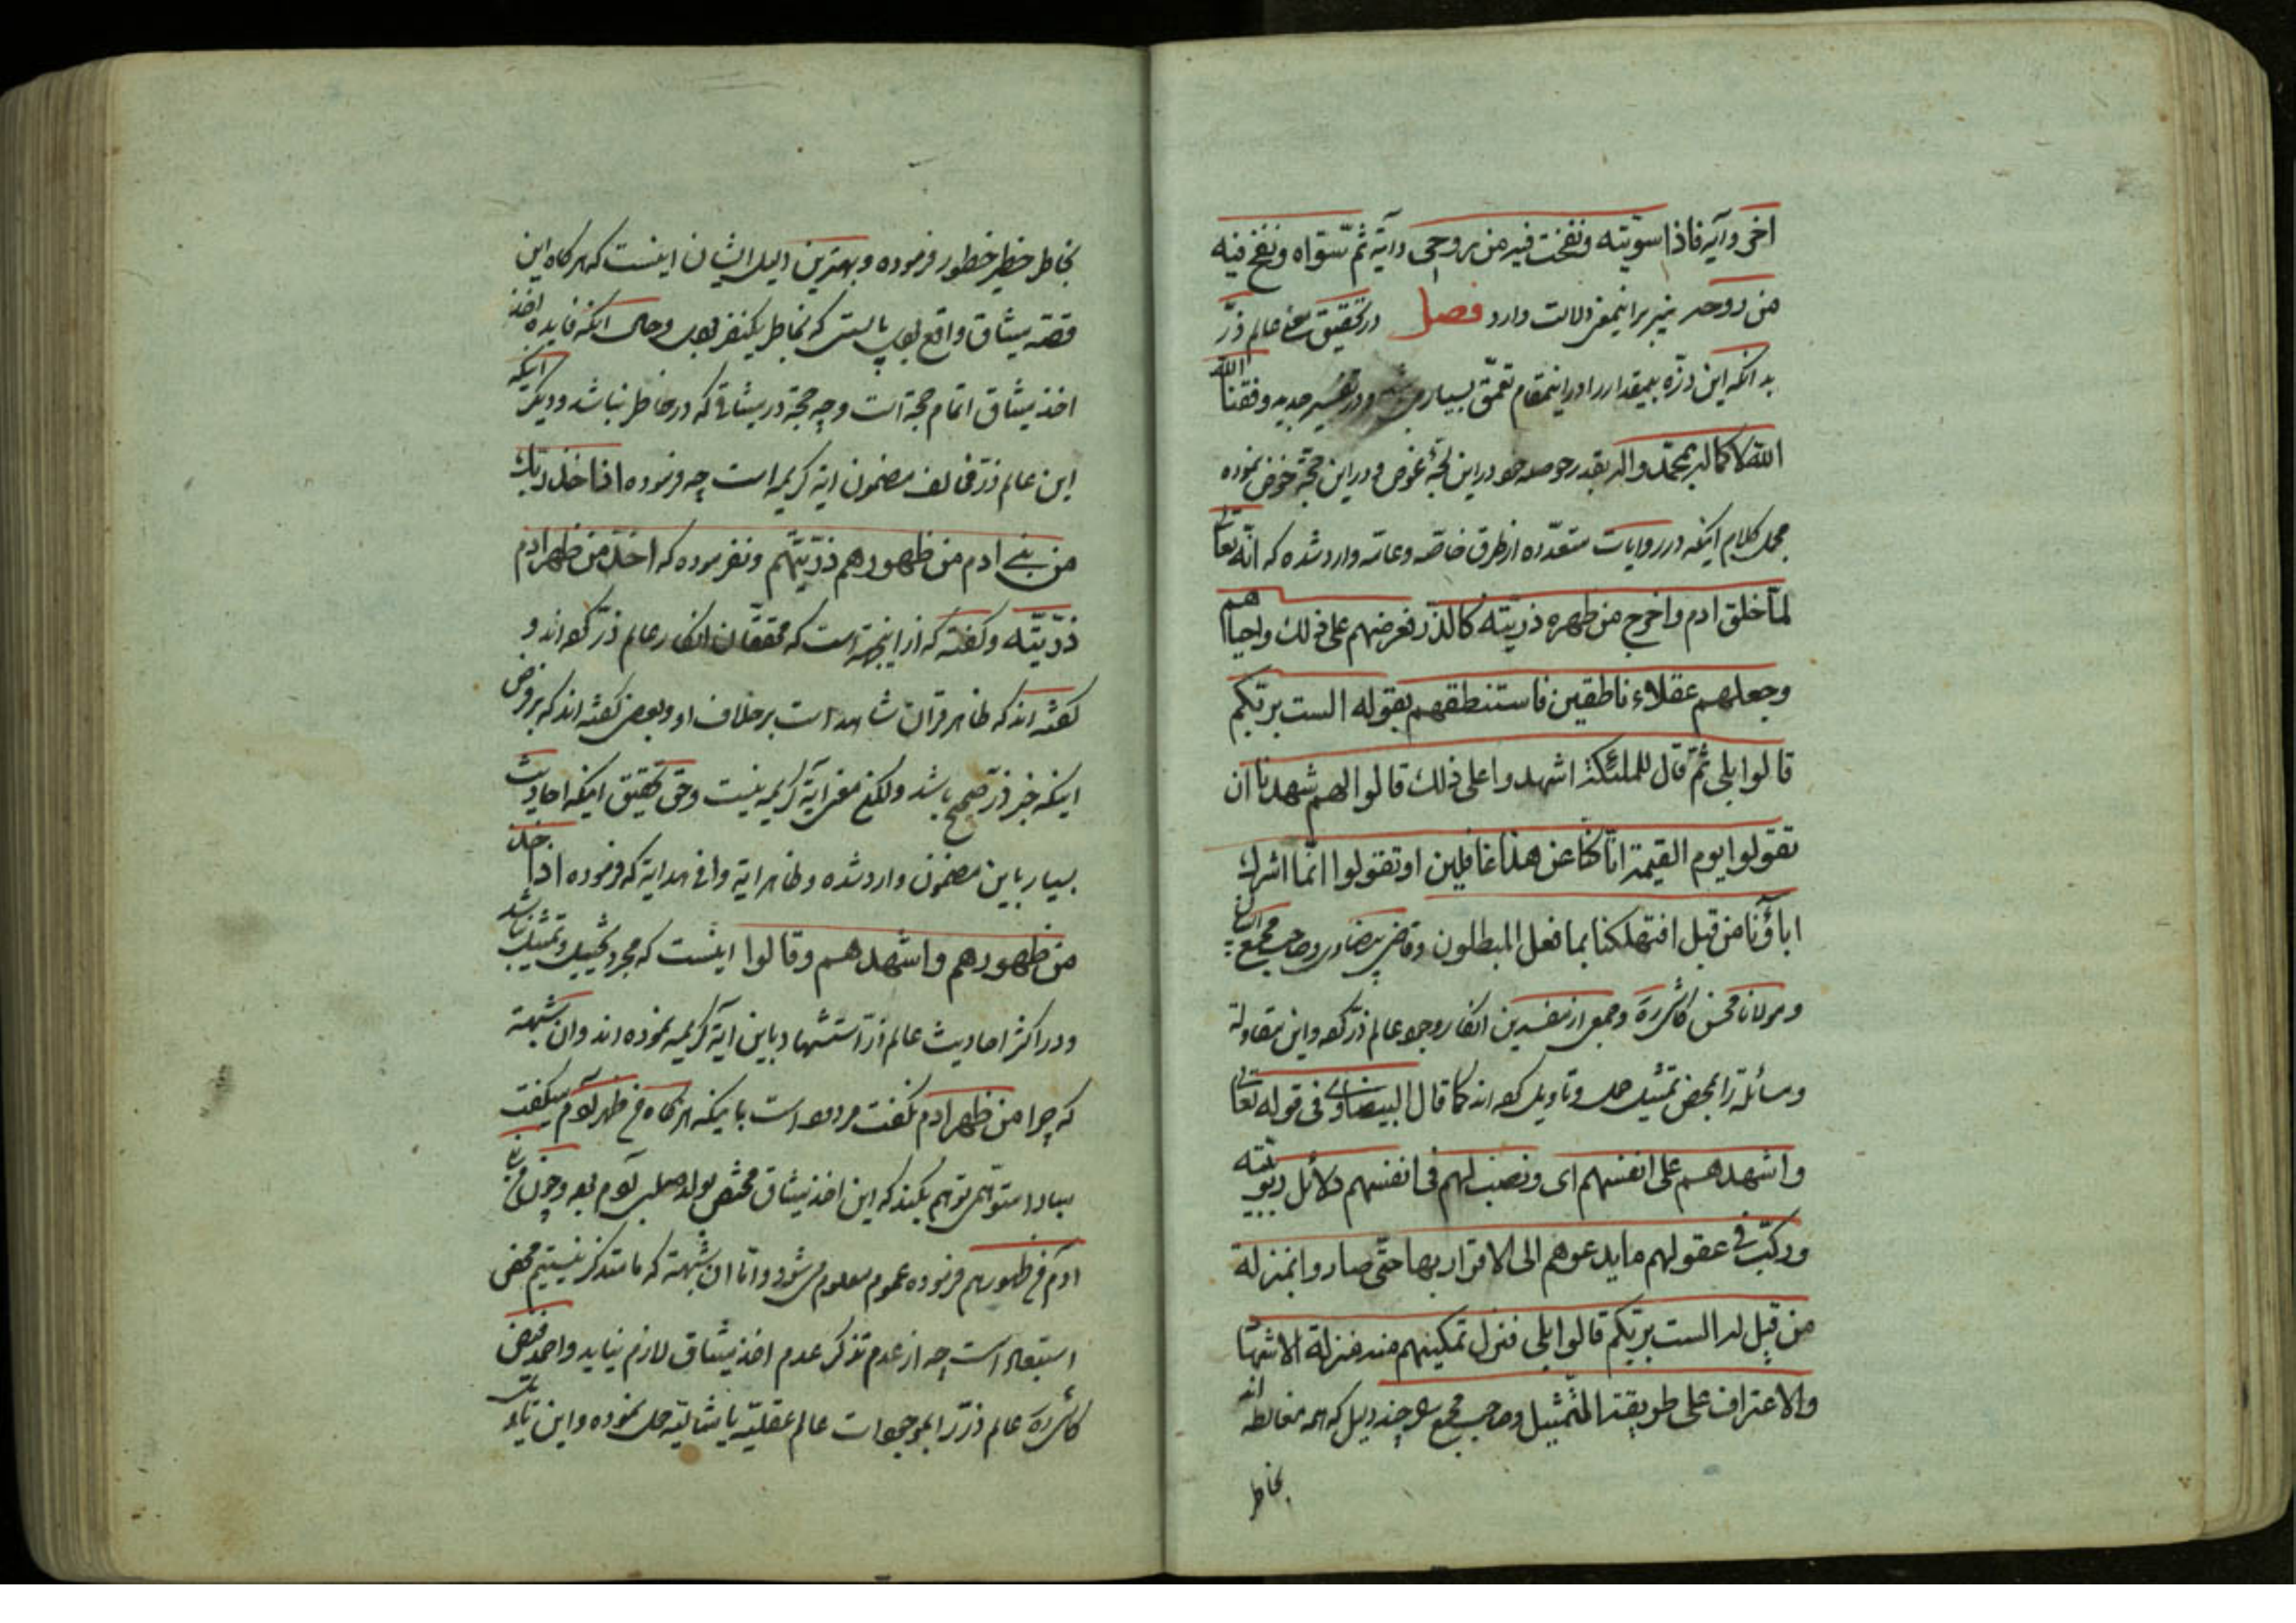 اخر وآیه فاذا سویته ونفخت فیه من روحی وآیة ثم سواه ونفخ فیه
من روحه نیز براینمعنی دلالت دارد فصل در تحقیق معنی عالم ذر
بدانکه این ذره بیمقدار را در اینمقام تعمق بسیار ودر تفسیر جدید وفقنا الله
الله لاکماله بمحمد واله بقدر حوصله خود در این لجهٔ غوص ودر این خوض نموده
مجمل کلام اینکه در روایات متعدده از طرق خاصه وعامه وارد شده که انه تعالی
لما خلق ادم واخرج من ظهره ذریته کالذر فعرضهم علی ذلک واحیاهم
وجعلهم عقلاء ناطقین فاستنطقهم بقوله الست بربکم
قالوا بلی ثم قال للملئکة اشهدوا علی ذلک قالوا الهم شهدنا ان
تقولوا یوم القیمة انا کنا عن هذا غافلین او تقولوا انما اشرک
اباؤنا من قبل افتهلکنا بما فعل المبطلون وقاضی بیضاوی وصاحب مجمع البیان
ومولانا محسن کاشی ره وجمعی از مفسرین انکار وجود عالم ذر کرده واین مقاوله
ومسائله را بمحض تمثیل حمل وتاویل کرده اند کما قال البیضاوی فی قوله تعالی
واشهدهم علی انفسهم ای ونصب لهم فی انفسهم دلائل ربوبیته
ورکب فی عقولهم ما یدعوهم الی الاقرار بها حتی صاروا بمنزلة
من قیل لهم الست بربکم قالوا بلی فنزل تمکینهم منه منزلة الاشهاد
والاعتراف علی طریقة التمثیل وصاحب مجمع چند دلیل که همه مغالطه اند
بخاطر
بخاطر خطیر خطور فرموده وبهترین دلیل ایشان اینست که هرگاه این
قصه میثاق واقع بود بایستی که بخاطر یکنفر بود وحال آنکه فایده اخذ
اخذ میثاق اتمام حجة است وچه حجة در میثاقی که در خاطر نباشد ودیگر آنکه
این عالم ذر مخالف مضمون ایه کریمه است چه فرموده اذ اخذ ربک
من بنی ادم من ظهورهم ذریتهم ونفرموده که اخذ من ظهر ادم
ذریته وگفته که از اینجهة است که محققان انکار عالم ذر کرده اند و
گفته اند که ظاهر قران شاهد است برخلاف او وبعضی گفته اند که بر فرض
اینکه خبر ذر صحیح باشد ولکن معنی آیه کریمه نیست وحق تحقیق اینکه احادیث
بسیار باین مضمون وارد شده وظاهر ایه وافی هدایه که فرموده اذ اخذ
من ظهورهم واشهدهم وقالوا اینست که مجرد تخییل وتمثیل نباشد
ودر اکثر احادیث عالم ذر استشهاد باین ایه کریمه نموده اند وان شبهه
که چرا من ظهر ادم نگفت مردود است باینکه هرگاه من ظهر آدم میگفت
مبادا متوهمی توهم بکند که این اخذ میثاق مختص بولد صلبی آدم بود وچون من بنی
ادم من ظهورهم فرموده عموم معلوم میشود واما ان شبهه که ما متذکر نیستیم محض
استبعاد است چه از عدم تذکر عدم اخذ میثاق لازم نیاید
کاشی ره عالم ذر را بموجودات عالم عقلیه یا مثالیه حمل نموده واین تاویل